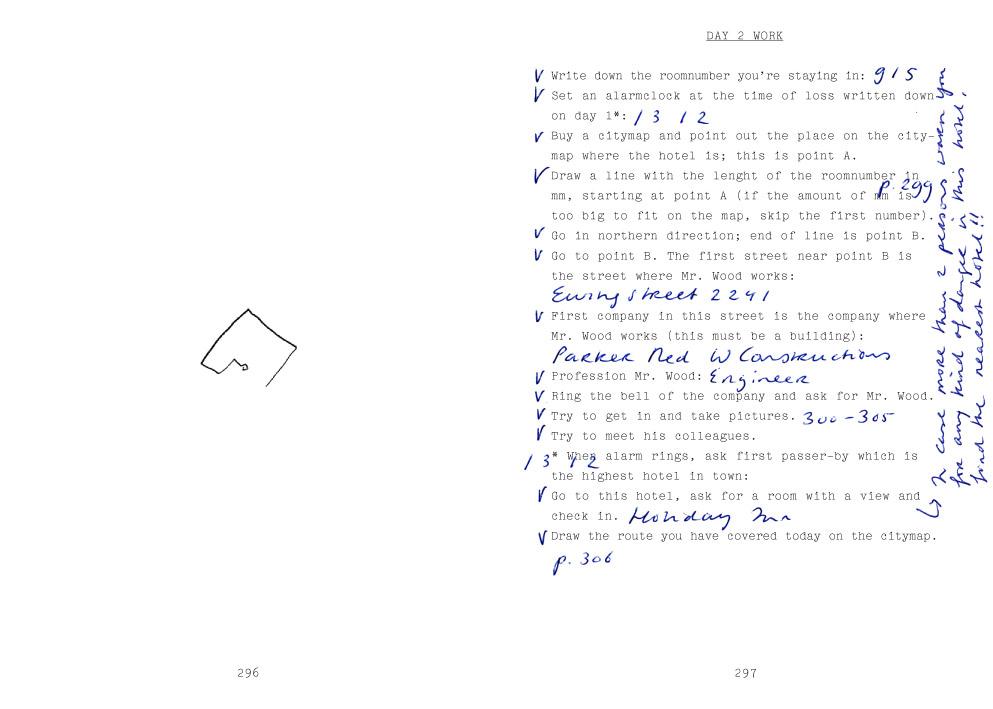 DAY 2 WORK
V Write down the roomnumber you're staying in: 915
V Set an alarmclock at the time of loss written down
on day 1*: 13 12
V Buy a citymap and point out the place on the city-
map where the hotel is; this is point A.
V Draw a line with the lenght of the roomnumber in
p. 299
mm, starting at point A (if the amount of mm is
too big to fit on the map, skip the first number).
V Go in northern direction; end of line is point B.
V Go to point B. The first street near point B is
the street where Mr. Wood works:
Ewing street 2241
V First company in this street is the company where
Mr. Wood works (this must be a building):
Parker Red W Constructions
V Profession Mr. Wood: Engineer
V Ring the bell of the company and ask for Mr. Wood.
V Try to get in and take pictures. 300-305
V Try to meet his colleagues.
13 12
* When alarm rings, ask first passer-by which is
the highest hotel in town:
V Go to this hotel, ask for a room with a view and
check in. Holiday Inn
V Draw the route you have covered today on the citymap.
p. 306
↳ In case more than 2 persons warn you
for any kind of danger in this hotel,
find the nearest hotel!!
296
297